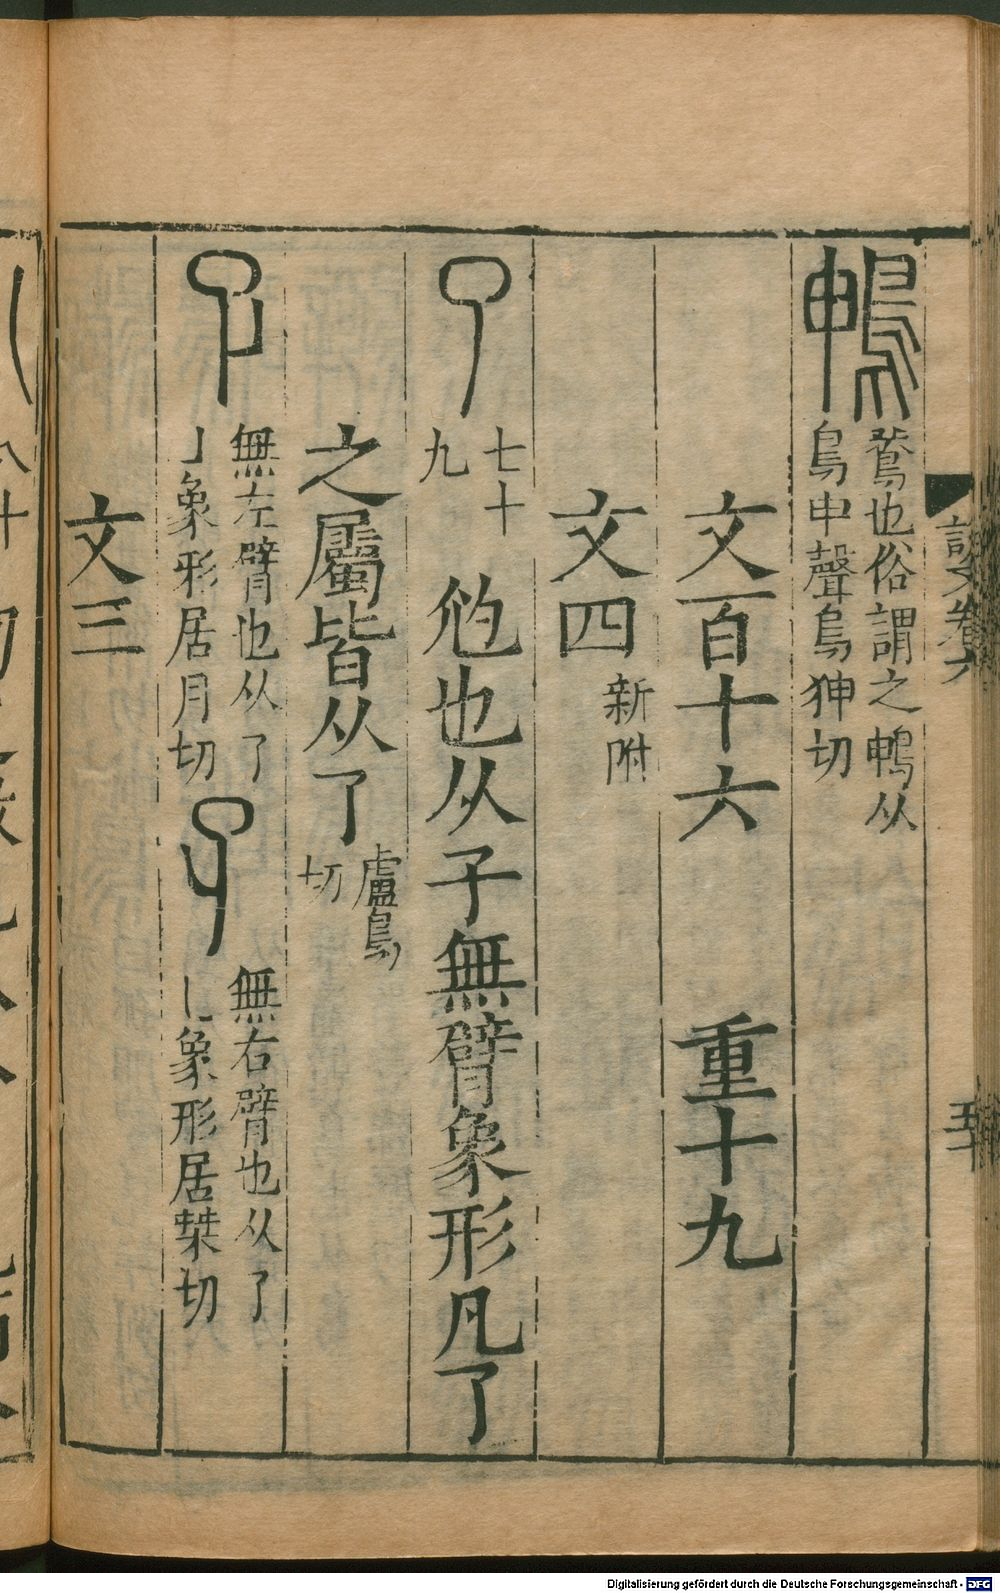 說文卷六
五十
鵯鶩也俗謂之鴨从
鳥申聲烏狎切
文百十六　重十九
文四新附
了七十
九
尥也从子無臂象形凡了
之屬皆从了盧鳥
切
孑無左臂也从了
亅象形居月切
孓無右臂也从了
乚象形居桀切
文三
八十
Digitalisierung gefördert durch die Deutsche Forschungsgemeinschaft - DFG